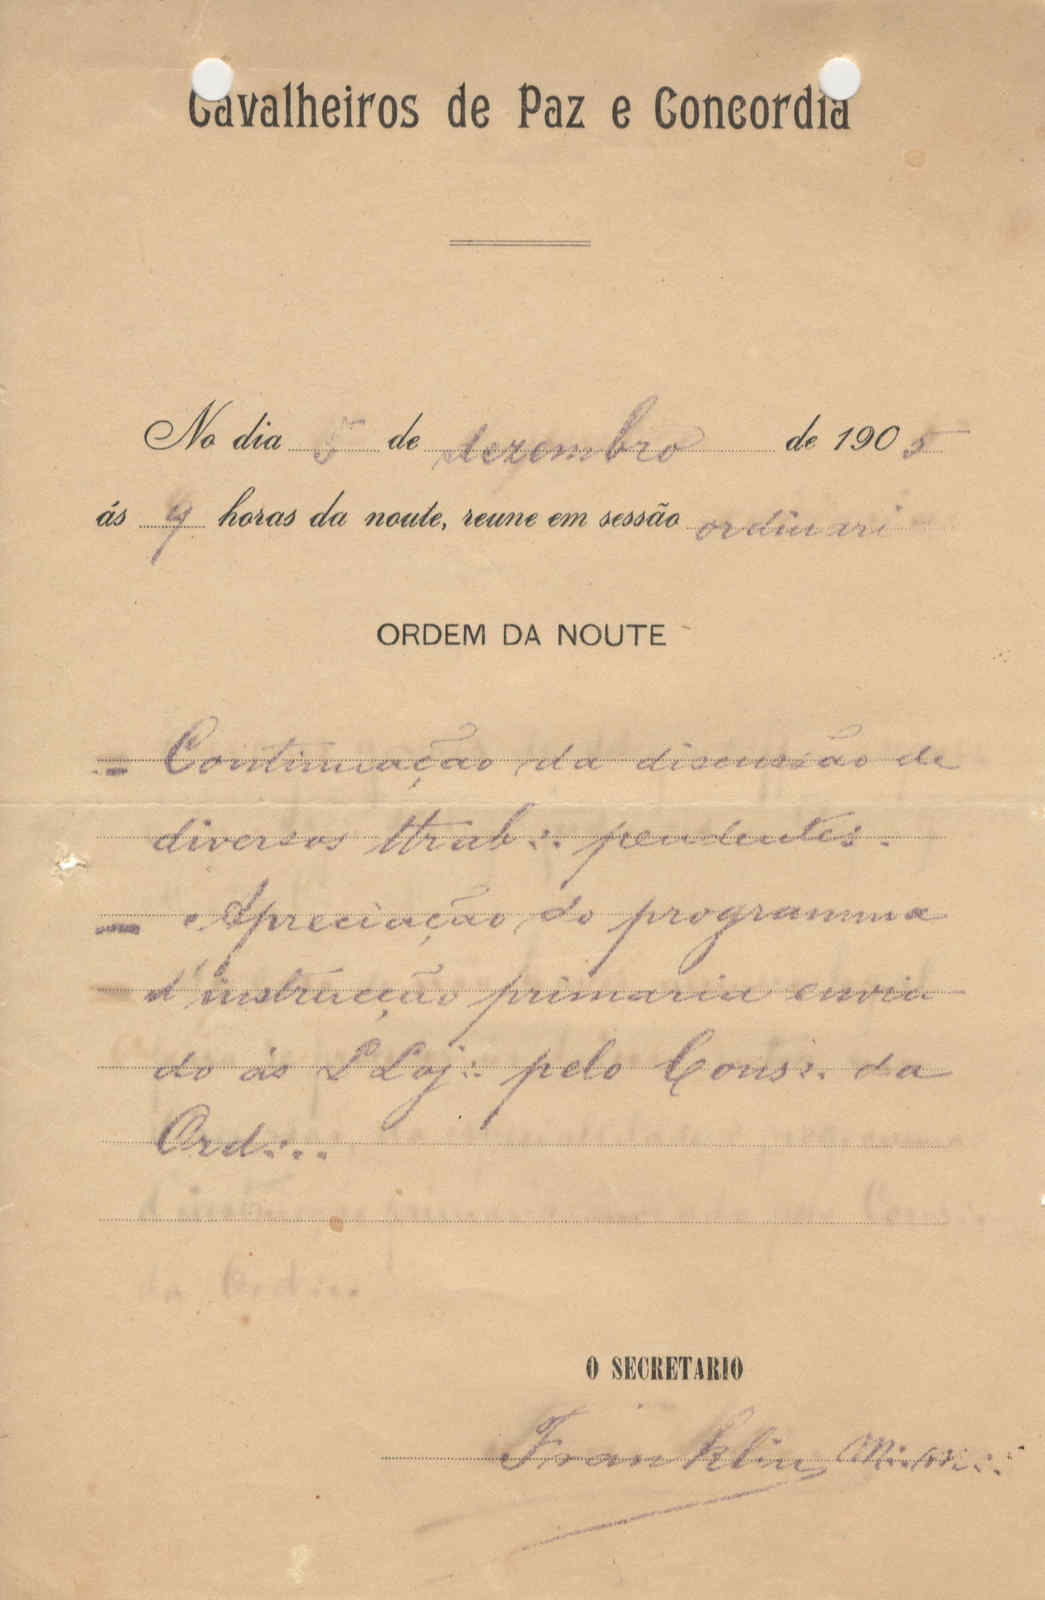 Cavalheiros de Paz e Concordia
No dia 5 de dezembro de 1905
ás 9 horas da noute, reune em sessão ordinaria
ORDEM DA NOUTE
= Continuação da discussão de
diversos ttrab∴ pendentes.
= Apreciação do programma
d'instrucção primaria envia-
do ás LLoj∴ pelo Cons∴ da
Ord∴.
O SECRETARIO
Franklin M∴M∴